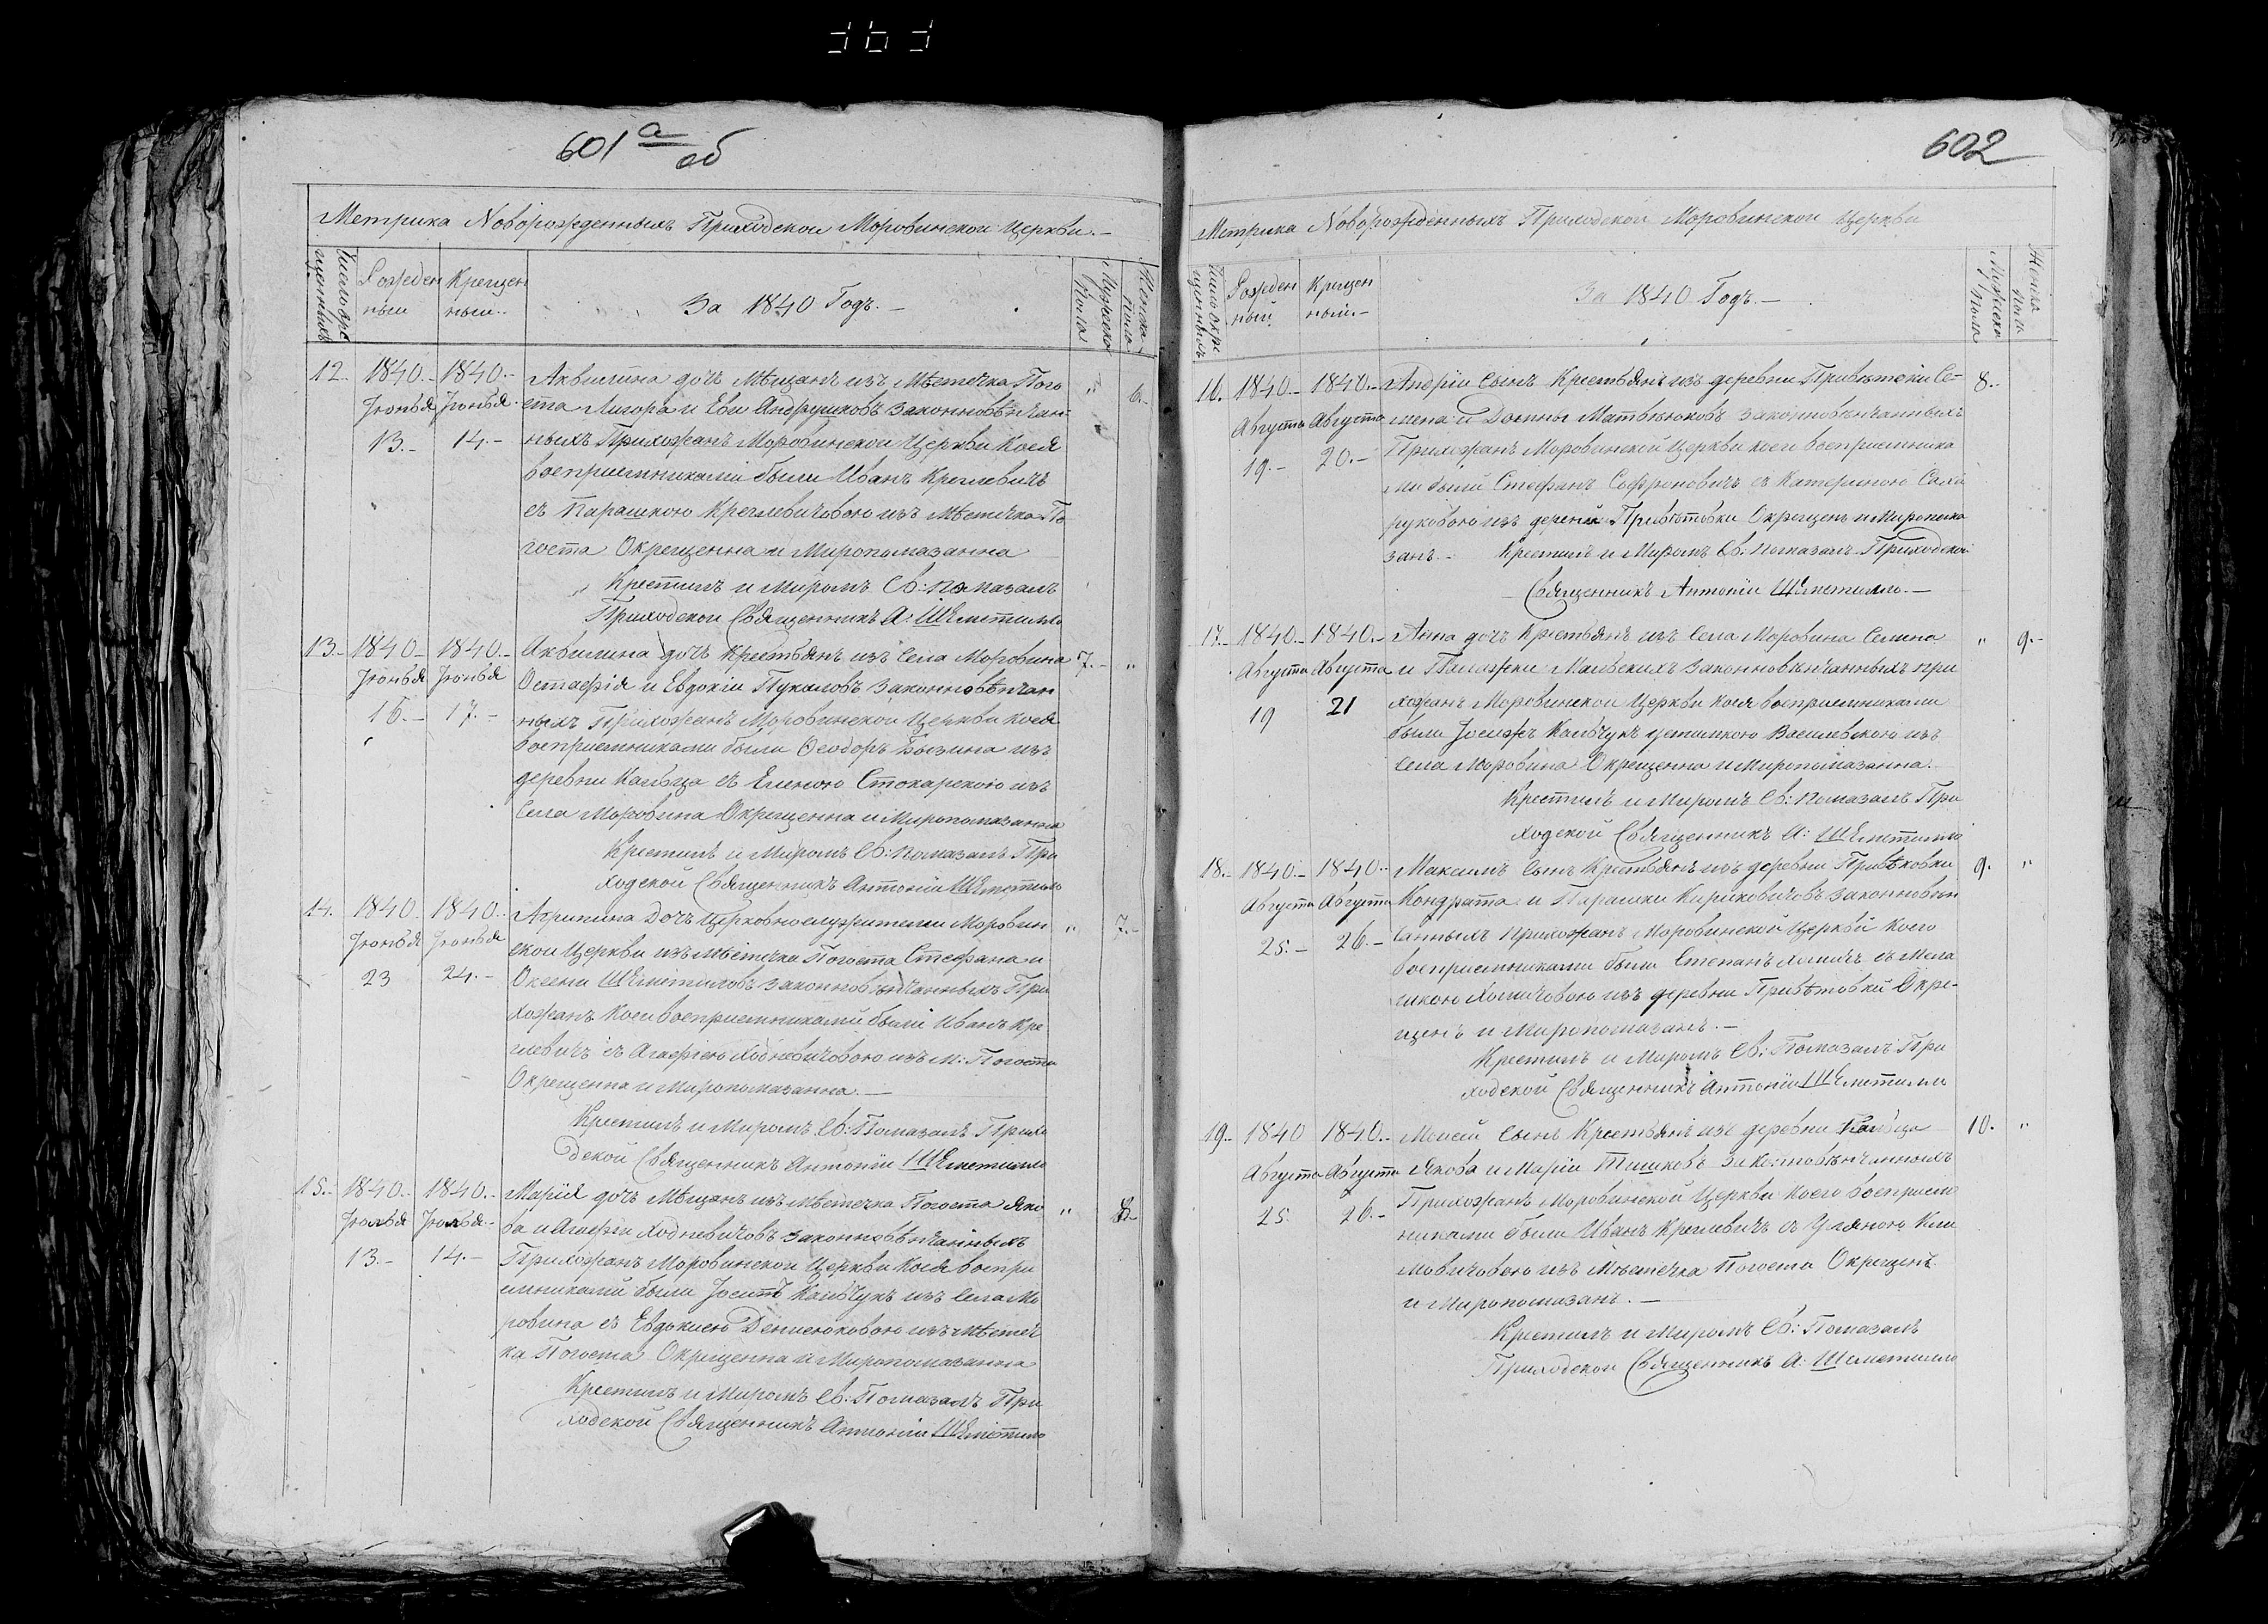 601 а об
Метрика Новорожденныхъ Приходской Моровинской Церкви.
Число окрещенныхъ
Рожденный
Крещенный
За 1840 Годъ.
Мужеска пола
Женска пола
12. 1840. 1840. Аквилина дочь Мѣщанъ изъ Мѣстечка Пого 6.
Іюнья Іюнья ста Лигора и Евы Андрушковъ законновѣнчан-
13. 14. ныхъ Прихожанъ Моровинской Церкви Коея
восприемниками были Иванъ Креглевичъ
съ Парашкою Креглевичовою изъ Мѣстечка По
госта Окрещенна и Миропомазанна
Крестилъ и Миромъ Св: Помазалъ
Приходской Священникъ А: Шеметилло
13. 1840 1840. Аквилина дочь Крестьянъ изъ Села Моровина 7. "
Іюнья Іюнья Остафія и Евдокіи Пукаловъ законновѣнчан
16. 17. ныхъ Прихожанъ Моровинской Церкви коея
восприемниками были Ѳеодоръ Бызина изъ
деревни Кальца съ Еленою Стокарскою изъ
Села Моровина Окрещенна и Миропомазанна
Крестилъ и Миромъ Св: Помазалъ При
ходской Священникъ Антоній Шеметилло
14. 1840. 1840. Агрипина Дочь Церковнослужители Моровин " 7.
Іюнья Іюнья ской Церкви изъ мѣстечка Погоста Стефана и
23 24. Оксени Шеметиловъ законновѣнчанныхъ При
хожанъ Коеи восприемниками были Иванъ Кре
глевичъ съ Агафіею Ходневичовою изъ М: Погоста
Окрещенна и Миропомазанна.
Крестилъ и Миромъ Св: Помазалъ Прихо
дской Священникъ Антоній Шеметилло
15. 1840. 1840. Марія дочь Мѣщанъ изъ Мѣстечка Погоста Яко " 8
Іюлья Іюлья ва и Агафіи Ходневичовъ законновѣнчанныхъ
13. 14. Прихожанъ Моровинской Церкви Коея воспри
емниками были Іосифъ Кальчукъ изъ Села Мо
ровина съ Евдокиею Денисюковою изъ мѣстеч
ка Погоста Окрещенна и Миропомазанна
Крестилъ и Миромъ Св: Помазалъ При
ходской Священникъ Антоній Шеметилло
602
Метрика Новорожденныхъ Приходской Моровинской Церкви
Число окрещенныхъ
Рожденный
Крещенный
За 1840 Годъ.
Мужеска пола
Женска пола
16. 1840. 1840. Андрій Сынъ Крестьянъ изъ деревни Привѣтовки Се= 8.
Августа Августа мена и Домны Матвѣюковъ законновѣнчанныхъ
19. 20. Прихожанъ Моровинской Церкви коеи восприемника
ми были Стефанъ Софроновичъ съ Катериною Саха
руковою изъ деревни Привѣтовки Окрещенъ и Миропома
занъ. Крестилъ и Миромъ Св: Помазалъ Приходской
Священникъ Антоній Шеметилло.
17. 1840. 1840. Анна дочь Крестьянъ изъ Села Моровина Семена " 9.
Августа Августа и Палажки Маевскихъ законновѣнчанныхъ при
19 21 хожанъ Моровинской Церкви Коея восприемниками
были Іосифъ Кальчукъ Василевскою изъ
Села Моровина Окрещенна и Миропомазанна.
Крестилъ и Миромъ Св: Помазалъ При
ходской Священникъ А: Шеметилло
18. 1840. 1840. Максимъ Сынъ Крестьянъ изъ деревни Привѣтовки 9. "
Августа Августа Кондрата и Парашки Кириковичовъ законновѣн
25. 26. чанныхъ прихожанъ Моровинской Церкви Коего
восприемниками были Степанъ Хомичъ съ Мела
шкою Хомичовою изъ деревни Привѣтовки Окре-
щенъ и Миропомазанъ.
Крестилъ и Миромъ Св: Помазалъ При
ходской Священникъ Антоній Шеметилло
19. 1840 1840. Моисей Сынъ Крестьянъ изъ деревни Кальца 10. "
Августа Августа Якова и Маріи Тишковъ Законновѣнчанныхъ
25. 26. Прихожанъ Моровинской Церкви Коего восприем
никами были Иванъ Креглевичъ съ Уляною Кли
мовичовою изъ Мѣстечка Погоста Окрещенъ
и Миропомазанъ.
Крестилъ и Миромъ Св: Помазалъ
Приходской Священникъ А: Шеметилло